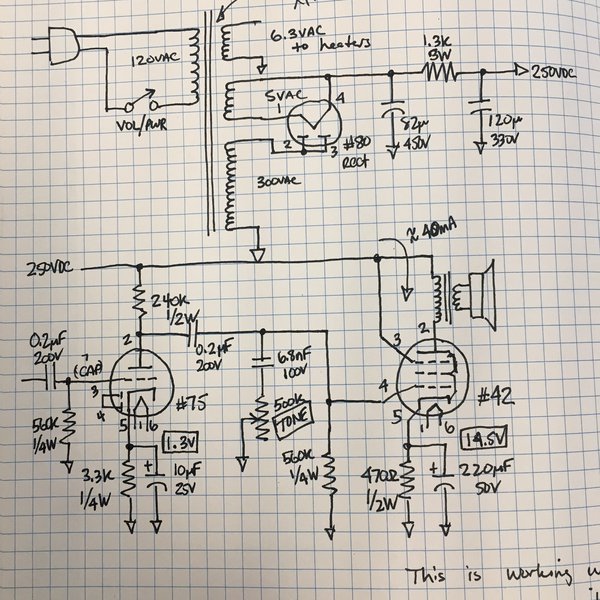 6.3VAC
to heaters
1.3K
3W
250VDC
120VAC
VOL/PWR
5VAC
1
4
2
3
#80
Rect
82µ
450V
120µ
330V
300VAC
≈ 40mA
250VDC
240K
1/2W
0.2µF
200V
2
(CAP)
3
4
#75
5
1
6
560K
1/4W
1.3V
3.3K
1/4W
+
10µF
25V
0.2µF
200V
6.8nF
100V
500K
TONE
560K
1/4W
3
2
4
5
1
6
#42
14.5V
470Ω
1/2W
+
220µF
50V
This is working